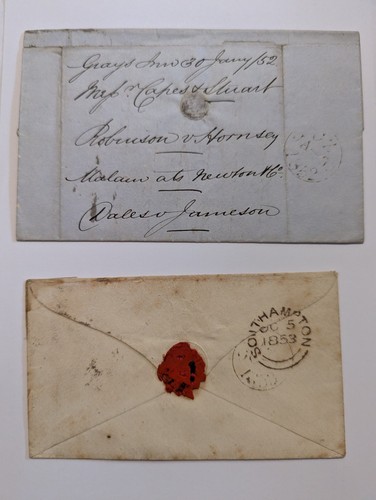 Grays Inn 30 Jany/52
Messrs Capes & Stuart
Robinson v Hornsey
Malam ats Newton & Co
Dales v Jameson
SOUTHAMPTON
OC 5
1853